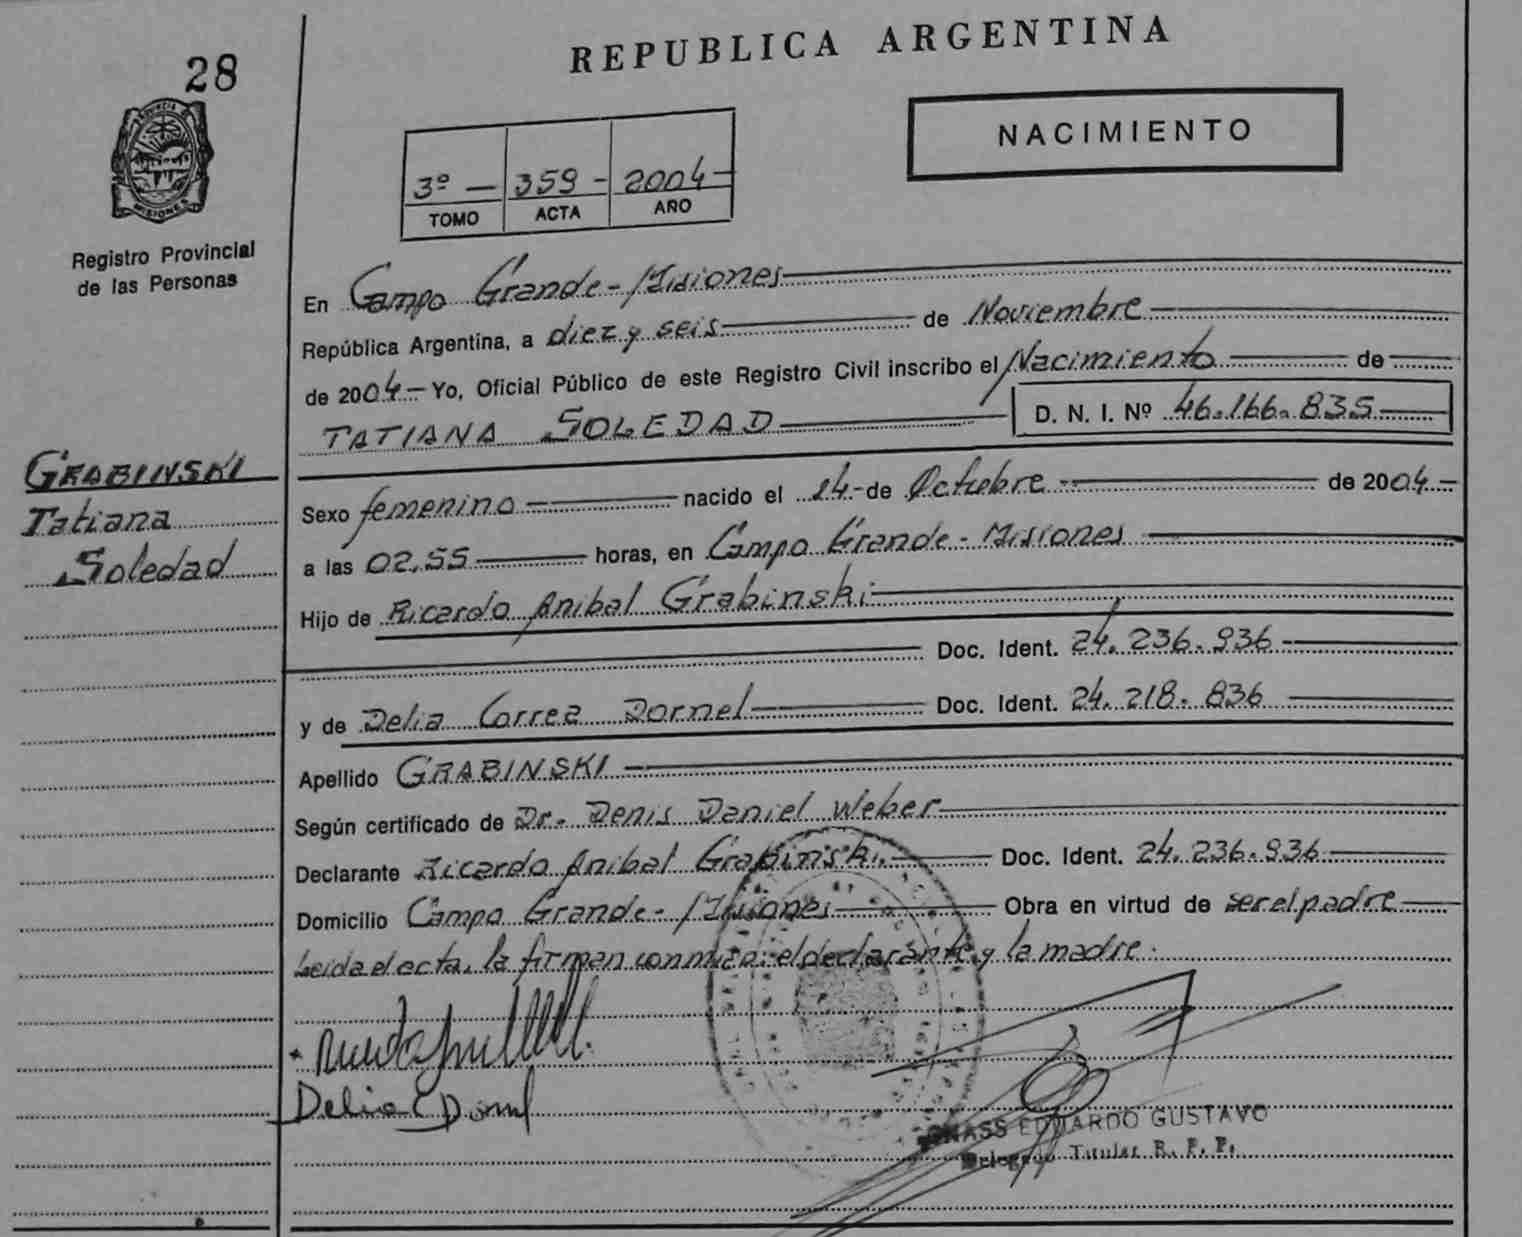 REPUBLICA ARGENTINA
28
NACIMIENTO
PROVINCIA
MISIONES
3º — 359 - 2004 -
TOMO ACTA AÑO
Registro Provincial
de las Personas
En Campo Grande - Misiones
República Argentina, a diez y seis de Noviembre
de 2004 - Yo, Oficial Público de este Registro Civil inscribo el Nacimiento de
TATIANA SOLEDAD D. N. I. Nº 46.166.835
GRABINSKI
Tatiana
Soledad
Sexo femenino nacido el 14 - de Octubre de 2004 -
a las 02,55 horas, en Campo Grande - Misiones
Hijo de Ricardo Anibal Grabinski
Doc. Ident. 24.236.936
y de Delia Correa Dornel Doc. Ident. 24.218.836
Apellido GRABINSKI
Según certificado de Dr. Denis Daniel Weber
Declarante Ricardo Anibal Grabinski Doc. Ident. 24.236.936
Domicilio Campo Grande - Misiones Obra en virtud de ser el padre
Leida el acta, la firman conmigo: el declarante y la madre.
Delia C Dornel
EDUARDO GUSTAVO
Delegado Titular R. P. P.